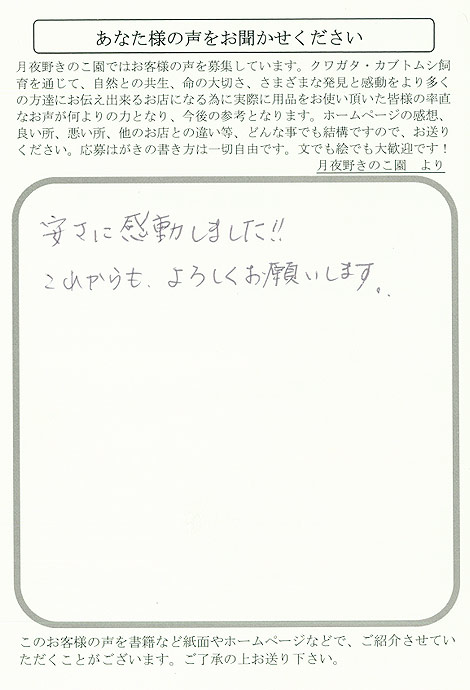 あなた様の声をお聞かせください
月夜野きのこ園ではお客様の声を募集しています。クワガタ・カブトムシ飼
育を通じて、自然との共生、命の大切さ、さまざまな発見と感動をより多く
の方達にお伝え出来るお店になる為に実際に用品をお使い頂いた皆様の率直
なお声が何よりの力となり、今後の参考となります。ホームページの感想、
良い所、悪い所、他のお店との違い等、どんな事でも結構ですので、お送り
ください。応募はがきの書き方は一切自由です。文でも絵でも大歓迎です！
月夜野きのこ園　より
安さに感動しました!!
これからも、よろしくお願いします。
このお客様の声を書籍など紙面やホームページなどで、ご紹介させてい
ただくことがございます。ご了承の上お送り下さい。